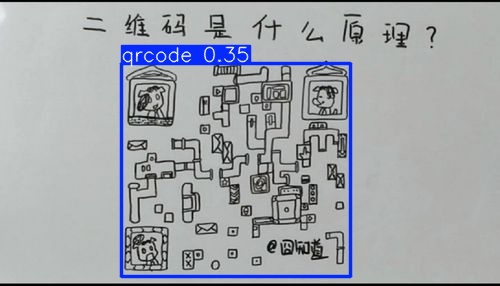 二维码是什么原理？
qrcode 0.35
@囧知道